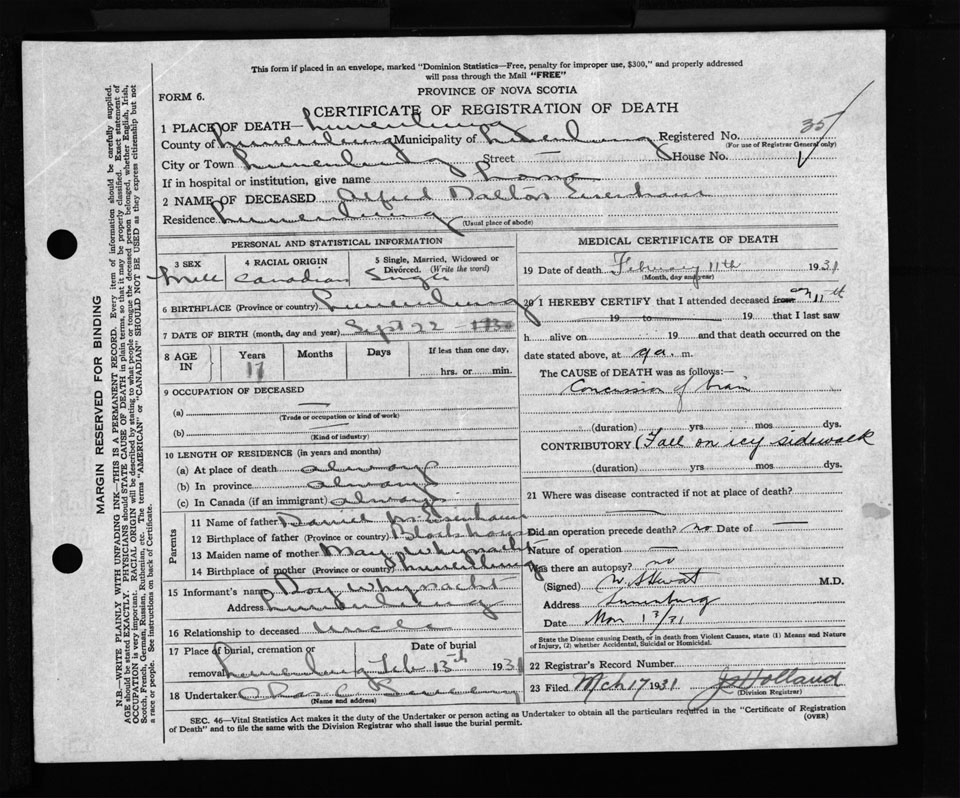 This form if placed in an envelope, marked "Dominion Statistics—Free, penalty for improper use, $300," and properly addressed
will pass through the Mail "FREE"
FORM 6.
PROVINCE OF NOVA SCOTIA
CERTIFICATE OF REGISTRATION OF DEATH
1 PLACE OF DEATH— Lunenburg
County of Lunenburg Municipality of Lunenburg Registered No. 35
(For use of Registrar General only)
City or Town Lunenburg Street — House No.
If in hospital or institution, give name
2 NAME OF DECEASED Alfred Dalton Eisenhauer
Residence Lunenburg
(Usual place of abode)
PERSONAL AND STATISTICAL INFORMATION
3 SEX Male
4 RACIAL ORIGIN Canadian
5 Single, Married, Widowed or Divorced. (Write the word) Single
6 BIRTHPLACE (Province or country) Lunenburg
7 DATE OF BIRTH (month, day and year) Sept 22
8 AGE IN Years Months Days If less than one day,
17 hrs. or min.
9 OCCUPATION OF DECEASED
(a) —
(Trade or occupation or kind of work)
(b)
(Kind of industry)
10 LENGTH OF RESIDENCE (in years and months)
(a) At place of death always
(b) In province always
(c) In Canada (if an immigrant) always
Parents
11 Name of father Daniel Eisenhauer
12 Birthplace of father (Province or country) Blockhouse
13 Maiden name of mother May Whynacht
14 Birthplace of mother (Province or country) Lunenburg
15 Informant's name Roy Whynacht
Address Lunenburg
16 Relationship to deceased Uncle
17 Place of burial, cremation or removal Lunenburg Date of burial Feb 13th 1931
18 Undertaker
(Name and address)
MEDICAL CERTIFICATE OF DEATH
19 Date of death February 11th 1931
(Month, day and year)
20 I HEREBY CERTIFY that I attended deceased from on 11th
19 to 19 that I last saw
h alive on 19 and that death occurred on the
date stated above, at 9 a. m.
The CAUSE of DEATH was as follows:—
Concussion of brain
(duration) yrs mos dys.
CONTRIBUTORY (Fall on icy sidewalk
(duration) yrs mos dys.
21 Where was disease contracted if not at place of death?
—
Did an operation precede death? no Date of —
Nature of operation —
Was there an autopsy? no
(Signed) M.D.
Address Lunenburg
Date
State the Disease causing Death, or in death from Violent Causes, state (1) Means and Nature
of Injury, (2) whether Accidental, Suicidal or Homicidal.
22 Registrar's Record Number
23 Filed Mch 17 1931 Holland
(Division Registrar)
SEC. 46—Vital Statistics Act makes it the duty of the Undertaker or person acting as Undertaker to obtain all the particulars required in the "Certificate of Registration
of Death" and to file the same with the Division Registrar who shall issue the burial permit.
(OVER)
MARGIN RESERVED FOR BINDING
N.B.—WRITE PLAINLY WITH UNFADING INK—THIS IS A PERMANENT RECORD. Every item of information should be carefully supplied.
AGE should be stated EXACTLY. PHYSICIANS should STATE CAUSE OF DEATH in plain terms, so that it may be properly classified. Exact statement of
OCCUPATION is very important. RACIAL ORIGIN will be described by stating to what people or tongue the deceased person belonged, whether English, Irish,
Scotch, French, German, Russian, Ruthenian, etc. The terms "AMERICAN" or "CANADIAN" SHOULD NOT BE USED as they express citizenship but not
a race or people. See instructions on back of Certificate.